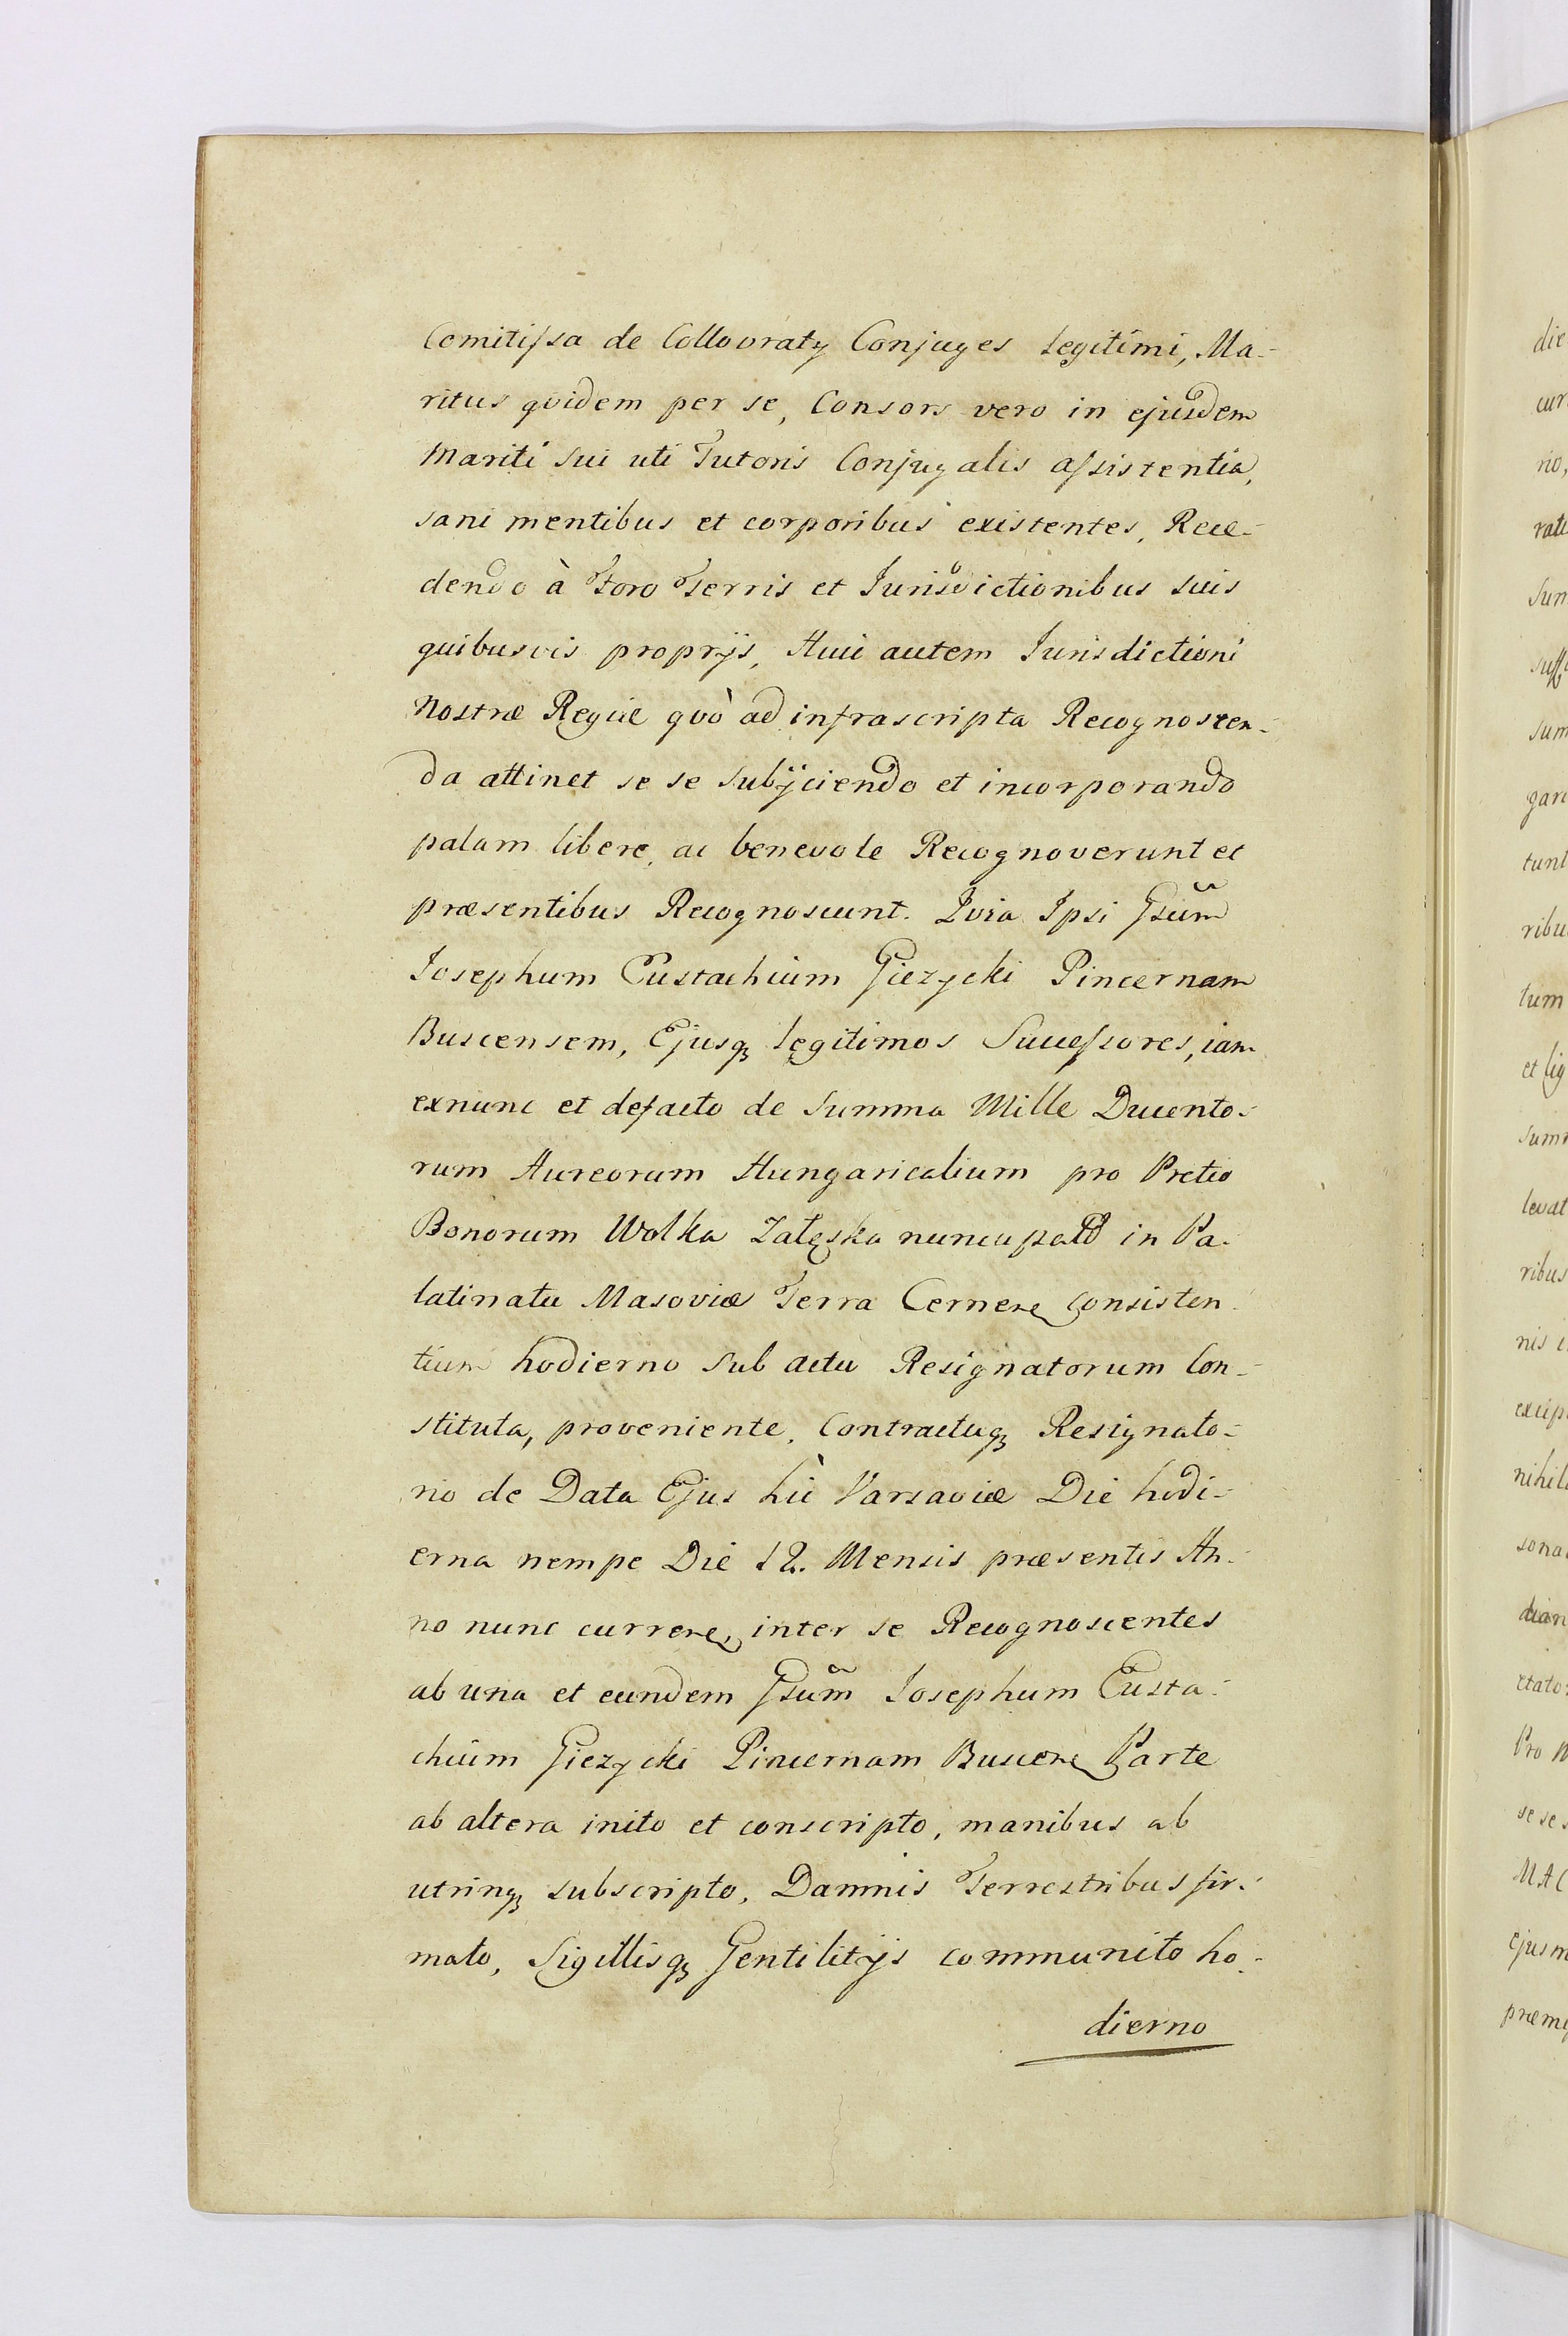 Comitissa de Collovraty Conjuges legitimi, Ma-
ritus qvidem per se, Consors vero in ejusdem
Mariti sui uti Tutoris Conjugalis assistentia,
sani mentibus et corporibus existentes, Rece-
dendo à Foro Terris et Jurisdictionibus suis
quibusvis proprijs, Huic autem Jurisdictioni
Nostræ Regiæ qvò ad infrascripta Recognoscen-
da attinet se se subÿciendo et incorporando
palam libere, ac benevole Recognoverunt et
præsentibus Recognoscunt. Qvia Ipsi Gsum̃
Josephum Eustachium Giezycki Pincernam
Buscensem, Ejusq₃ legitimos Successores, iam
exnunc et defacto de Summa Mille Ducento-
rum Aureorum Hungaricalium pro Pretio
Bonorum Wolka Załęska nuncupat in Pa-
latinatu Masoviæ Terra Cernen consisten-
tium hodierno sub actu Resignatorum Con-
stituta, proveniente, Contractuq₃ Resignato-
rio de Data Ejus hìc Varsaviæ Die hodi-
erna nempe Die 12. Mensis præsentis An-
no nunc curren, inter se Recognoscentes
ab una et eundem Gsum̃ Josephum Eusta-
chium Giezycki Pincernam Buscen Parte
ab altera inito et conscripto, manibus ab
utrinq₃ subscripto, Damnis Terrestribus fir-
mato, Sigillisq₃ Gentilitÿs communito ho-
dierno